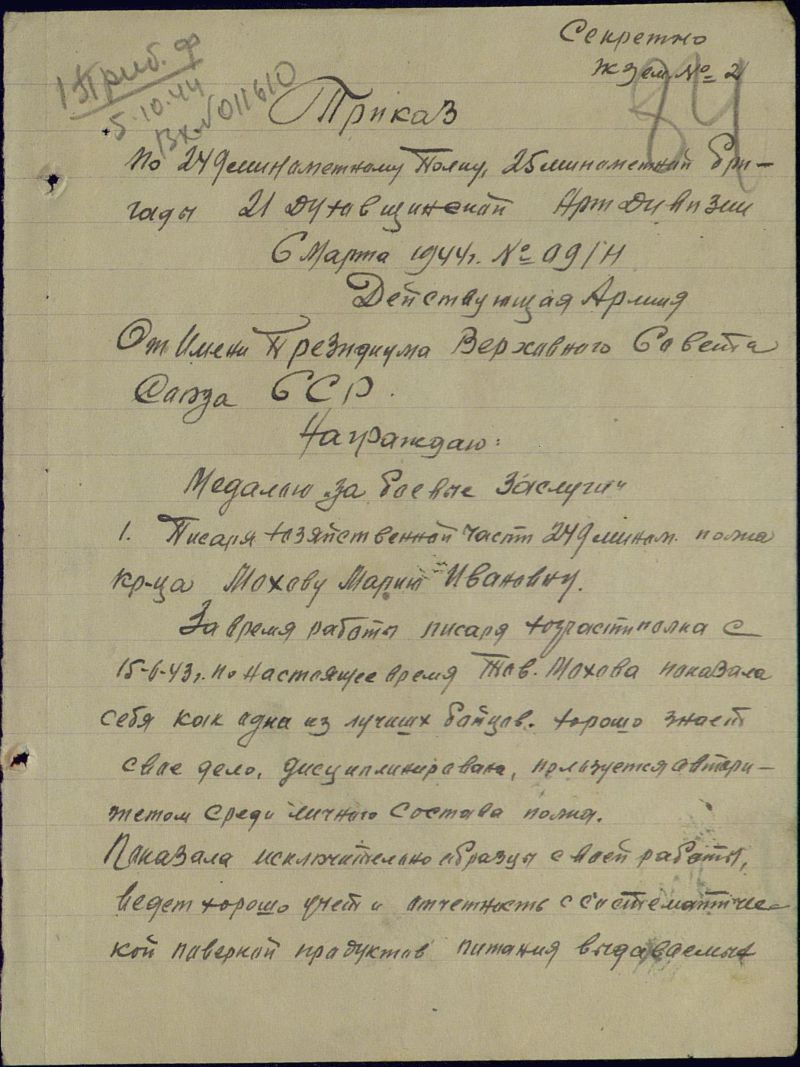 Секретно
Экзем. № 2
1 Триб. ф
5.10.44
Вх № 011610
84
Приказ
По 249 минометному Полку, 25 минометной Бри-
гады 21 Духовщинской Арт Дивизии
6 Марта 1944г. № 09/Н
Действующая Армия
От Имени Президиума Верховного Совета
Союза ССР.
Награждаю:
Медалью „За боевые Заслуги"
1. Писаря хозяйственной части 249 мином. полка
кр-ца Мохову Марию Ивановну.
За время работы писаря хозчасти полка с
15-6-43г. по настоящее время Тов. Мохова показала
себя как одна из лучших бойцов. хорошо знает
свое дело, дисциплинирована, пользуется автори-
тетом среди личного состава полка.
Показала исключительно образцы своей работы,
ведет хорошо учет и отчетность с систематичес-
кой поверкой продуктов питания выдаваемых